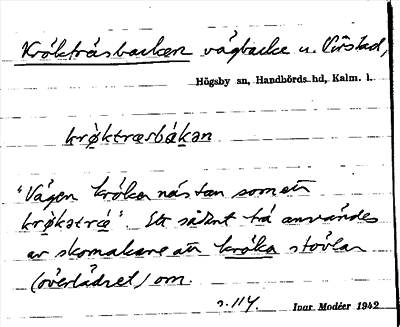 Krökträsbacken vägbacke n. Virstad,
Högsby sn, Handbörds hd, Kalm. l.
krø̀ktræsbákən
"Vägen kröker nästan som ett
krø̀kətræ̀". Ett sådant trä användes
av skomakare att kröka stövlar
(överlädret) om.
s. 114.
Ivar Modéer 1942